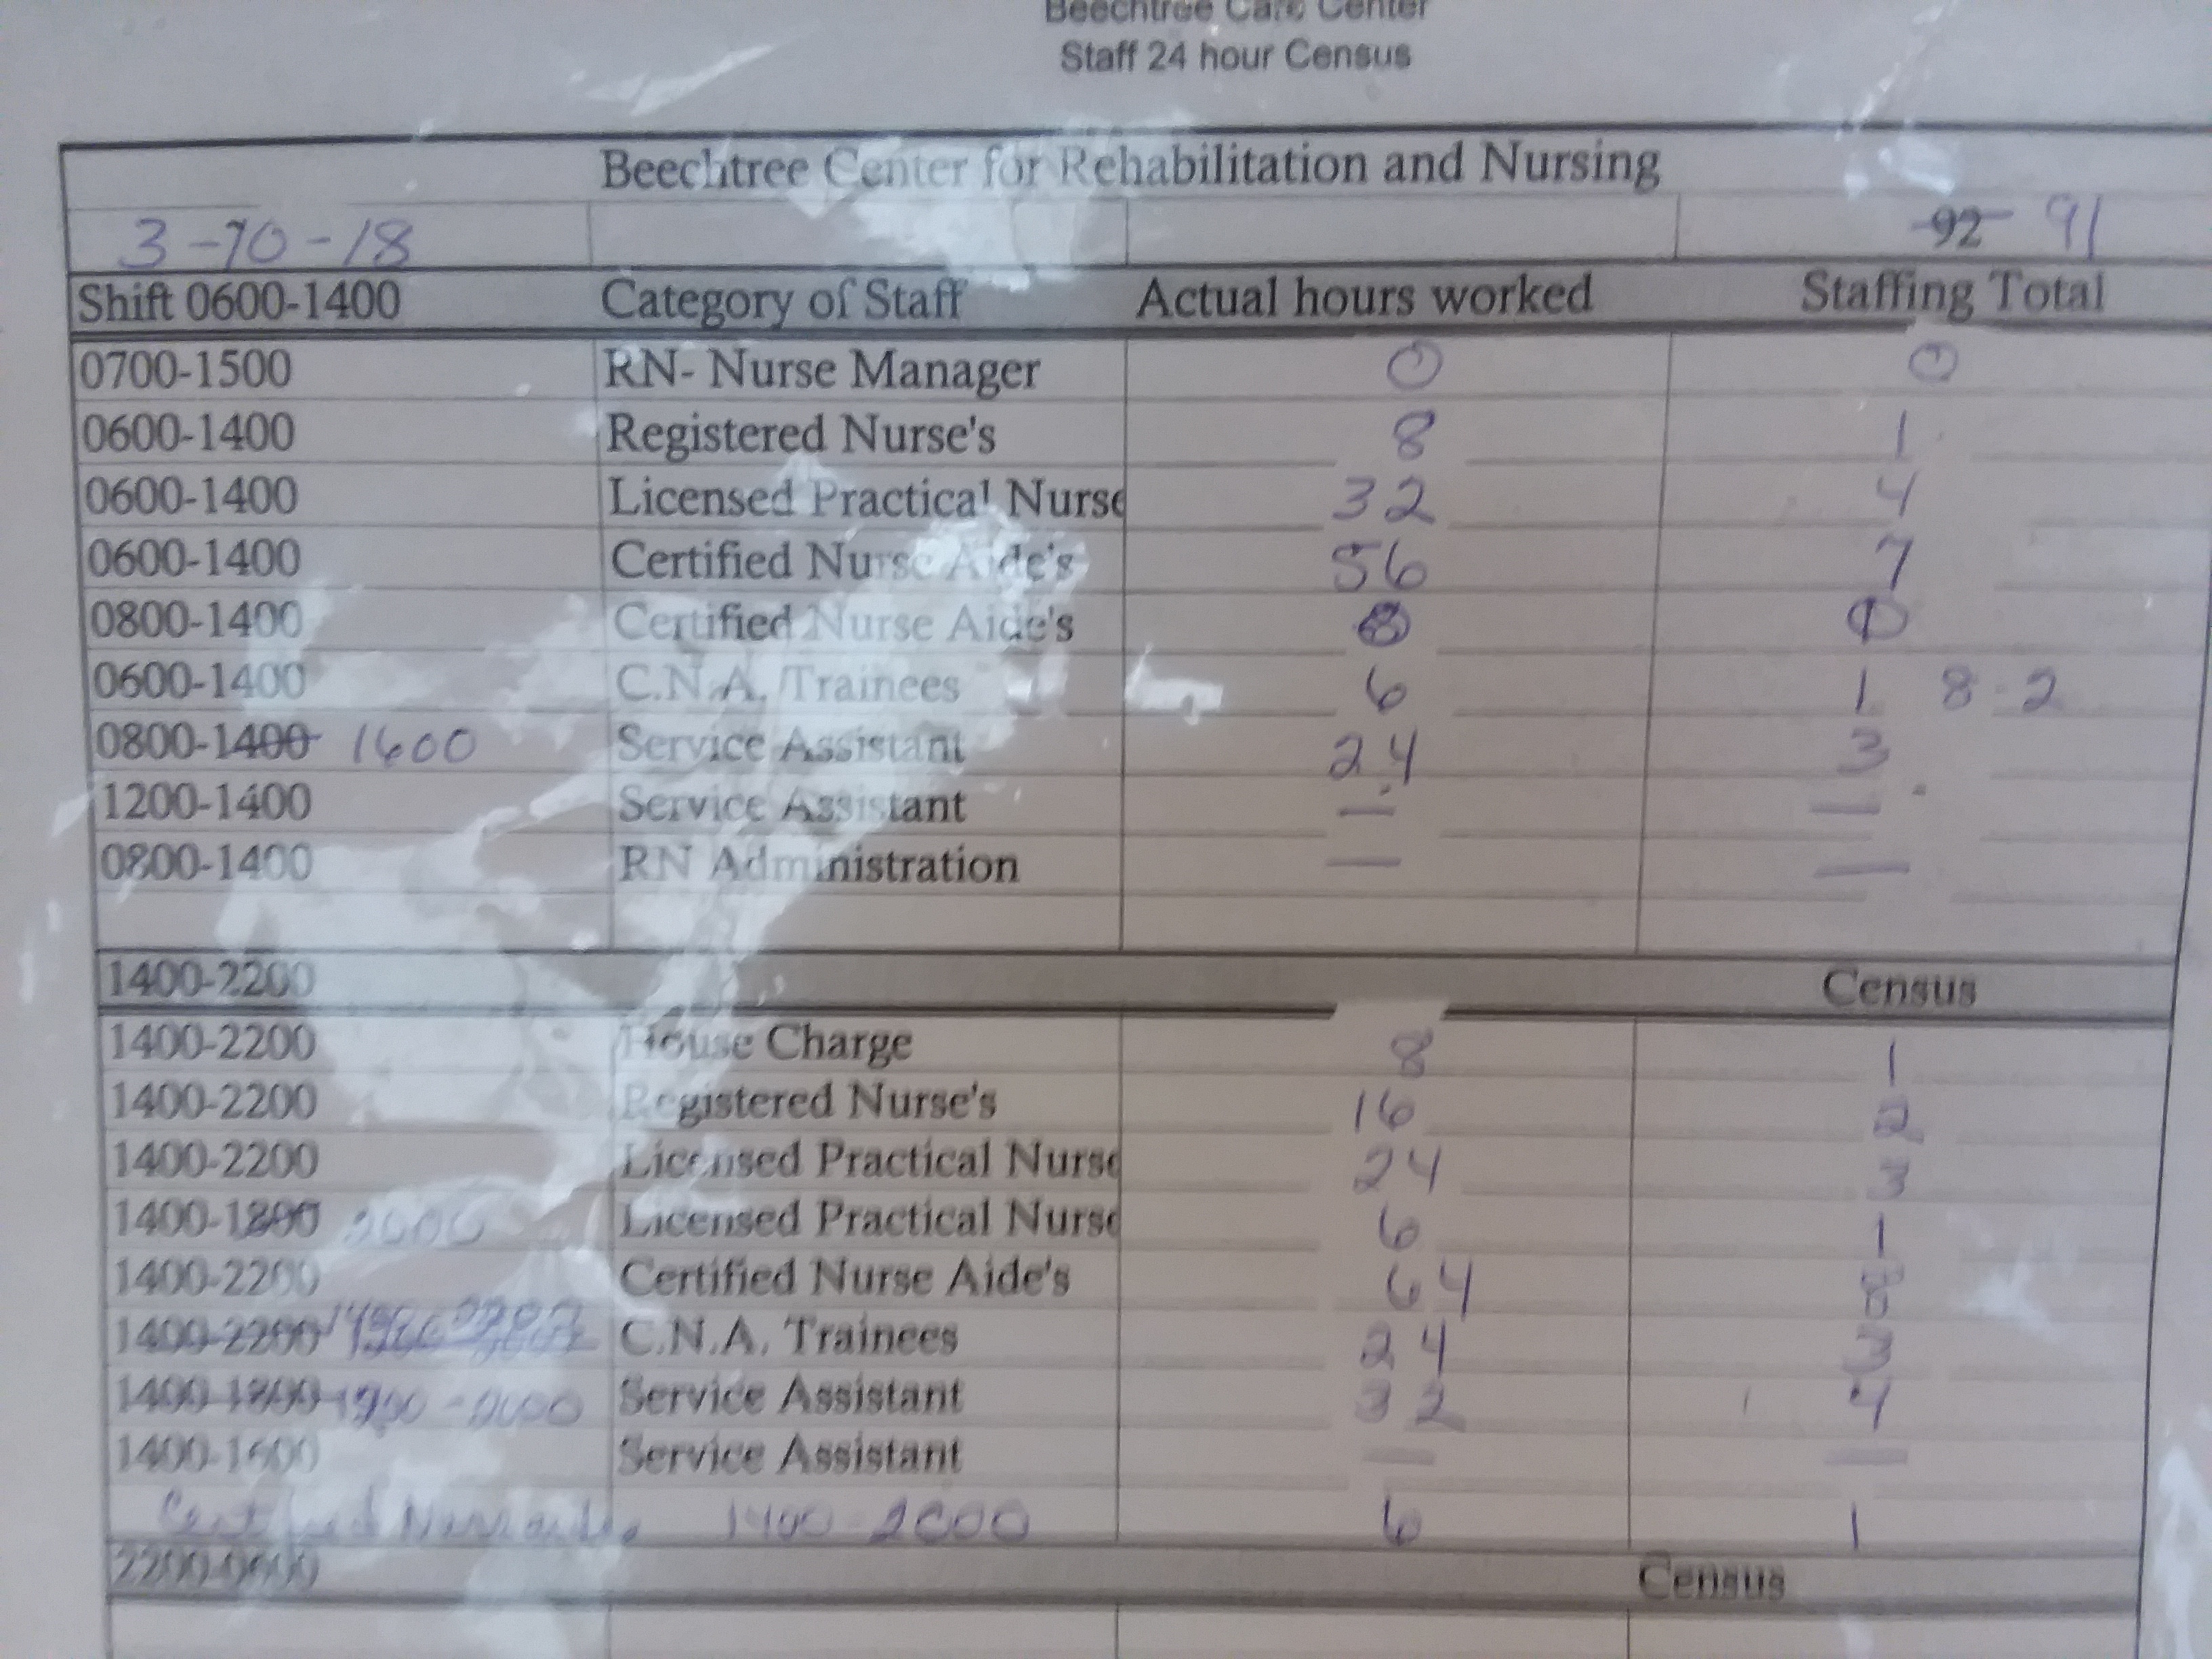 Beechtree Care Center
Staff 24 hour Census
Beechtree Center for Rehabilitation and Nursing
3-10-18 92 91
Shift 0600-1400 Category of Staff Actual hours worked Staffing Total
0700-1500 RN- Nurse Manager 0 0
0600-1400 Registered Nurse's 8 1
0600-1400 Licensed Practical Nurse 32 4
0600-1400 Certified Nurse Aide's 56 7
0800-1400 Certified Nurse Aide's
0600-1400 C.N.A. Trainees 6 1 8 2
0800-1400 1600 Service Assistant 24 3
1200-1400 Service Assistant — —
0800-1400 RN Administration — —
1400-2200 Census
1400-2200 House Charge 8 1
1400-2200 Registered Nurse's 16 2
1400-2200 Licensed Practical Nurse 24 3
1400-1800 2000 Licensed Practical Nurse 6 1
1400-2200 Certified Nurse Aide's 64 8
1400-2200 C.N.A. Trainees 24 3
1400-1800 Service Assistant 32 4
1400-1600 Service Assistant — —
Certified Nurse 1400-2000 6 1
2200-0600 Census